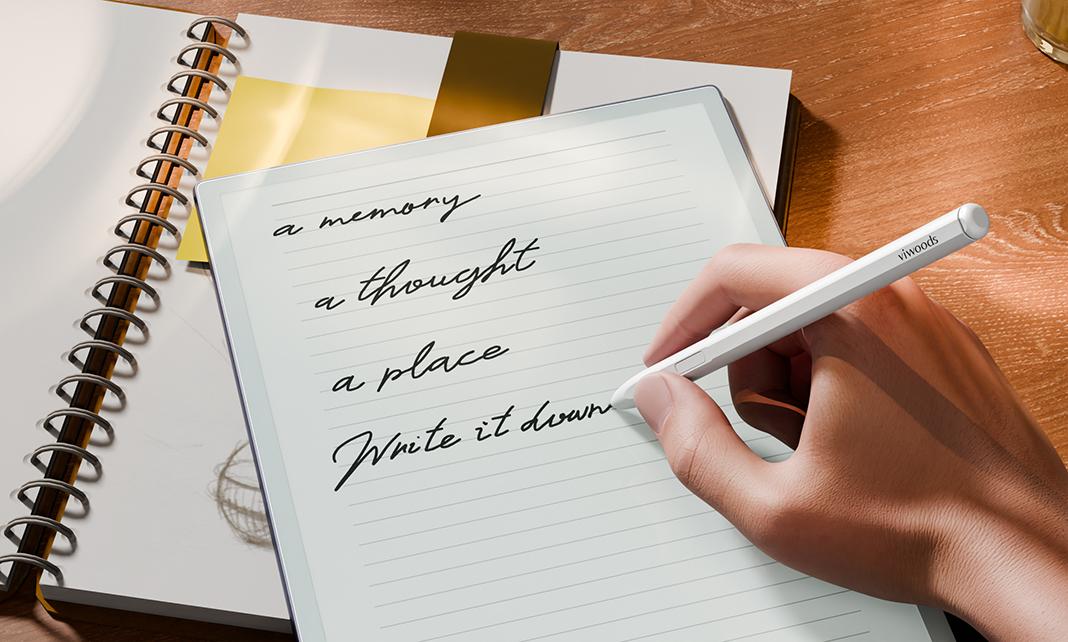 a memory
a thought
a place
Write it down
viwoods